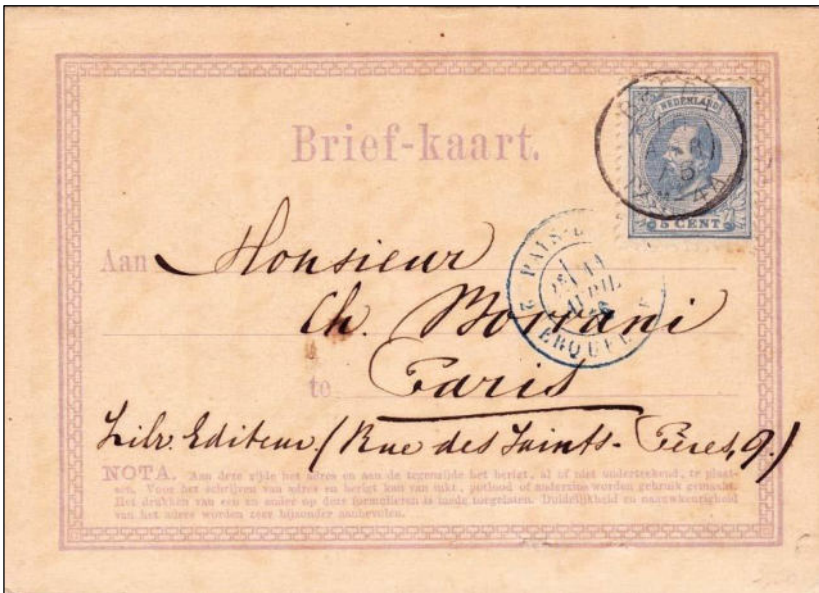 NEDERLAND
5 CENT
Brief-kaart.
Aan Monsieur
Ch. Borrani
te Paris
Libr. Editeur. (Rue des Saints-Pères, 9.)
PAYS-
2
AVRIL
ERQUEL
NOTA. Aan deze zijde het adres en aan de tegenzijde het berigt, al of niet onderteekend, te plaat-
sen. Voor het schrijven van adres en berigt kan van inkt, potlood of anderzins worden gebruik gemaakt.
Het drukken van een en ander op deze formulieren is mede toegelaten. Duidelijkheid en naauwkeurigheid
van het adres worden zeer bijzonder aanbevolen.